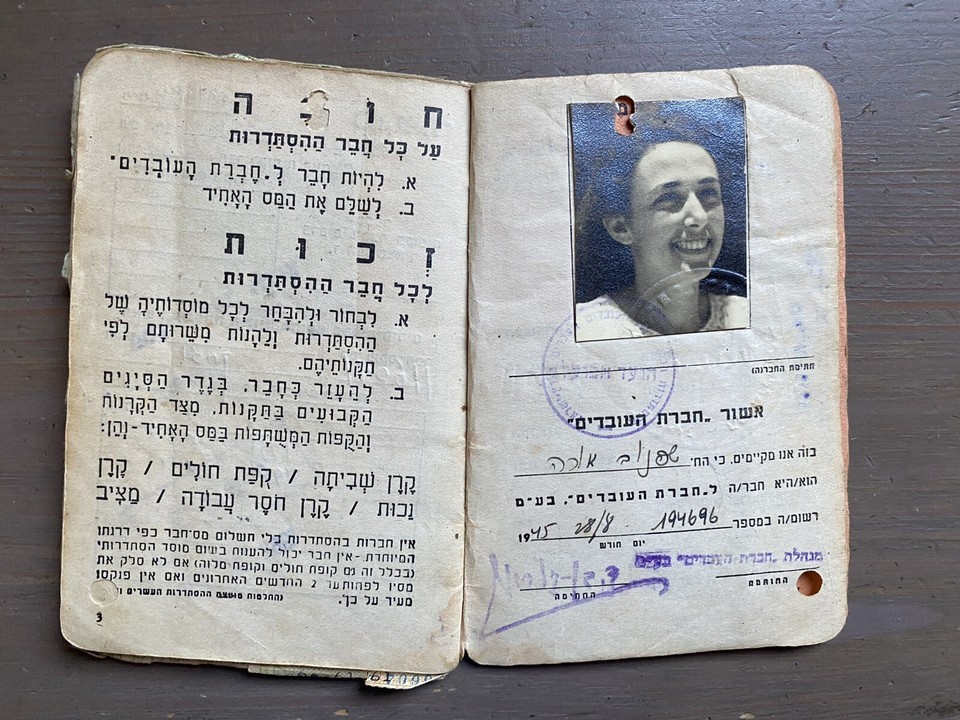 חובה
עַל כָּל חֲבֵר הַהִסְתַּדְרוּת
א. לִהְיוֹת חָבֵר לְ„חֶבְרַת הָעוֹבְדִים"
ב. לְשַׁלֵּם אֶת הַמַּס הָאָחִיד
זְכוּת
לְכָל חֲבֵר הַהִסְתַּדְרוּת
א. לִבְחוֹר וּלְהִבָּחֵר לְכָל מוֹסְדוֹתֶיהָ שֶׁל
הַהִסְתַּדְרוּת וְלֵהָנוֹת מִשֵּׁרוּתָם לְפִי
תַּקָּנוֹתֵיהֶם.
ב. לְהֵעָזֵר כְּחָבֵר, בְּגֶדֶר הַסְּיָגִים
הַקְּבוּעִים בַּתַּקָּנוֹת, מִצַּד הַקְּרָנוֹת
וְהַקֻּפּוֹת הַמְשֻׁתָּפוֹת בַּמַּס הָאָחִיד-וְהֵן:
קֶרֶן שְׁבִיתָה / קֻפַּת חוֹלִים / קֶרֶן
נָכוּת / קֶרֶן חֹסֶר עֲבוֹדָה / מַצִּיב
אין חברות בהסתדרות בלי תשלום מס-חבר כפי דרגתו
המיוחדת-אין חבר יכול להענות בשום מוסד הסתדרותי
(בכלל זה גם קופת חולים וקופת מלוה) אם לא סלק את
מסיו לפחות עד 2 החדשים האחרונים ואם אין פנקסו
מעיד על כך.
(החלטות מועצת ההסתדרות העשרים
3
חתימת החבר/ה)
אשור „חברת העובדים"
בזה אנו מקיימים, כי החׄ
הוא/היא חבר/ה ל„חברת העובדים", בע"מ
רשום/ה במספר 194696 28/8 1945
יום חודש
מנהלת „חברת העובדים" בע"מ
החותמת
החתימה